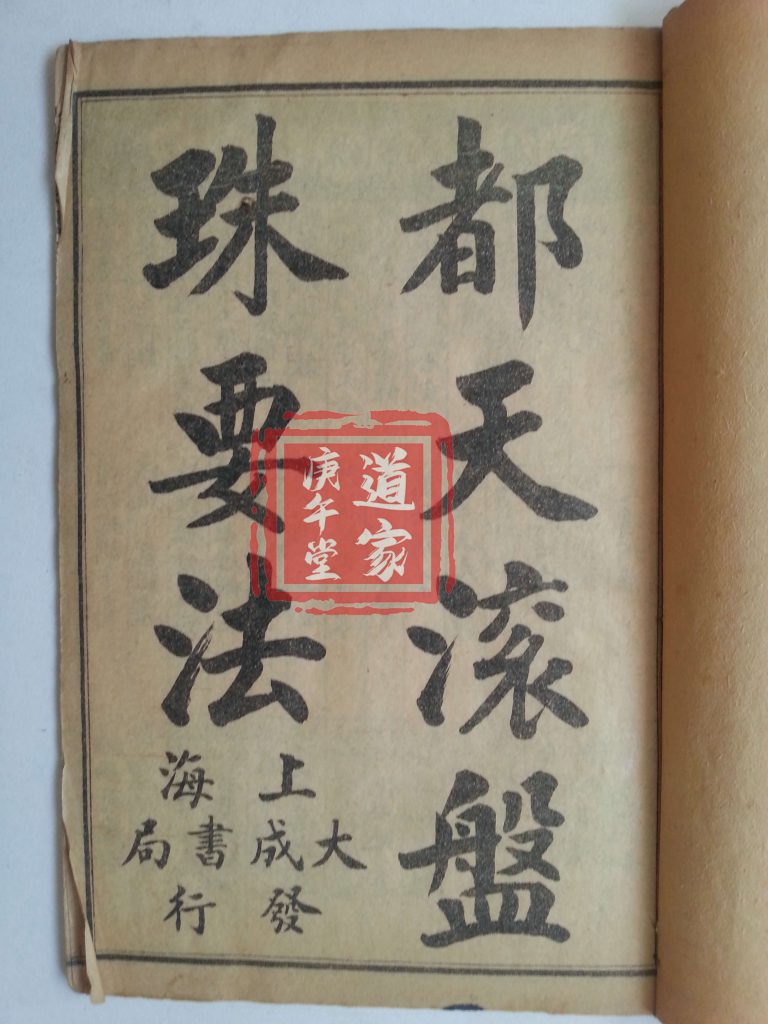 都天滚盤
珠要法
上海
大成書局
發行
道家
庚午堂